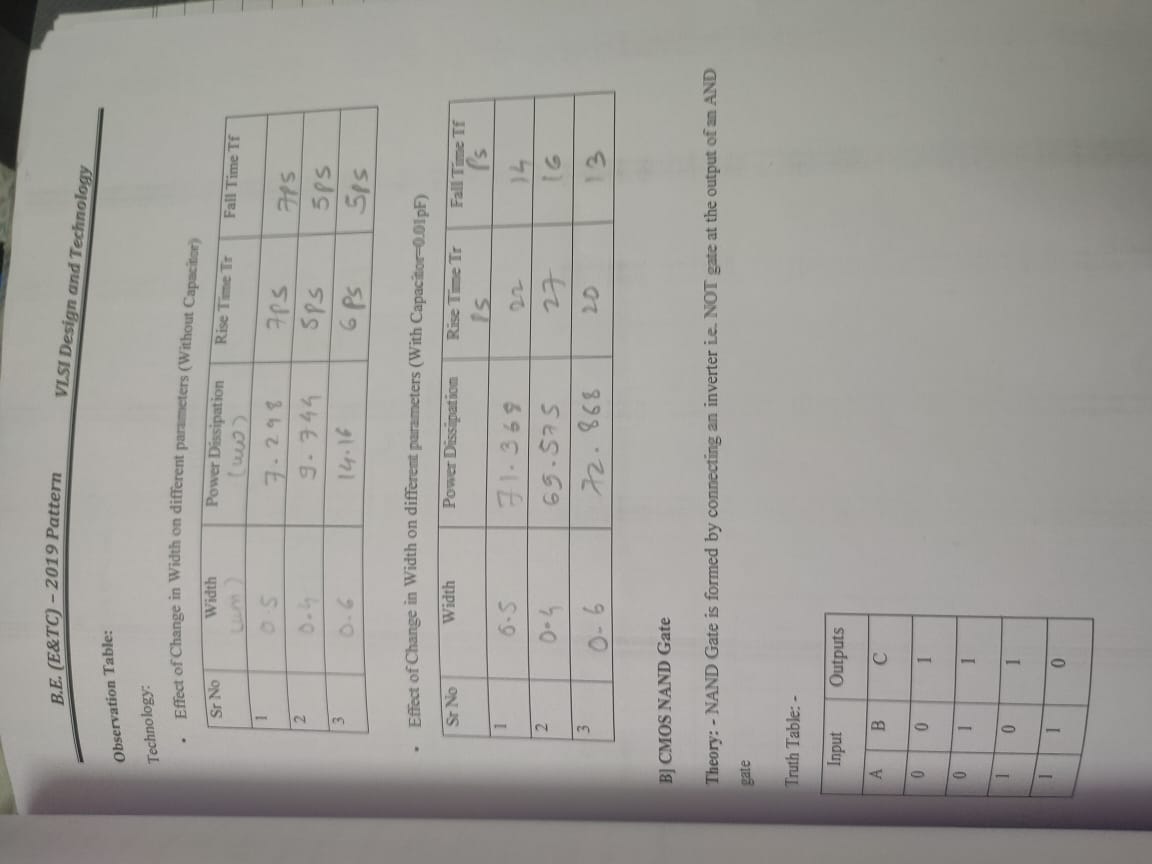 B.E. (E&TC) – 2019 Pattern VLSI Design and Technology
Observation Table:
Technology:
• Effect of Change in Width on different parameters (Without Capacitor)
Sr No Width (um) Power Dissipation (uw) Rise Time Tr Fall Time Tf
1 0.5 7.298 7ps 7ps
2 0.4 9.744 5ps 5ps
3 0.6 14.16 6ps 5ps
• Effect of Change in Width on different parameters (With Capacitor=0.01pF)
Sr No Width Power Dissipation Rise Time Tr ps Fall Time Tf Ps
1 0.5 71.369 22 14
2 0.4 69.575 27 16
3 0.6 72.868 20 13
B] CMOS NAND Gate
Theory: - NAND Gate is formed by connecting an inverter i.e. NOT gate at the output of an AND
gate
Truth Table: -
Input Outputs
A B C
0 0 1
0 1 1
1 0 1
1 1 0